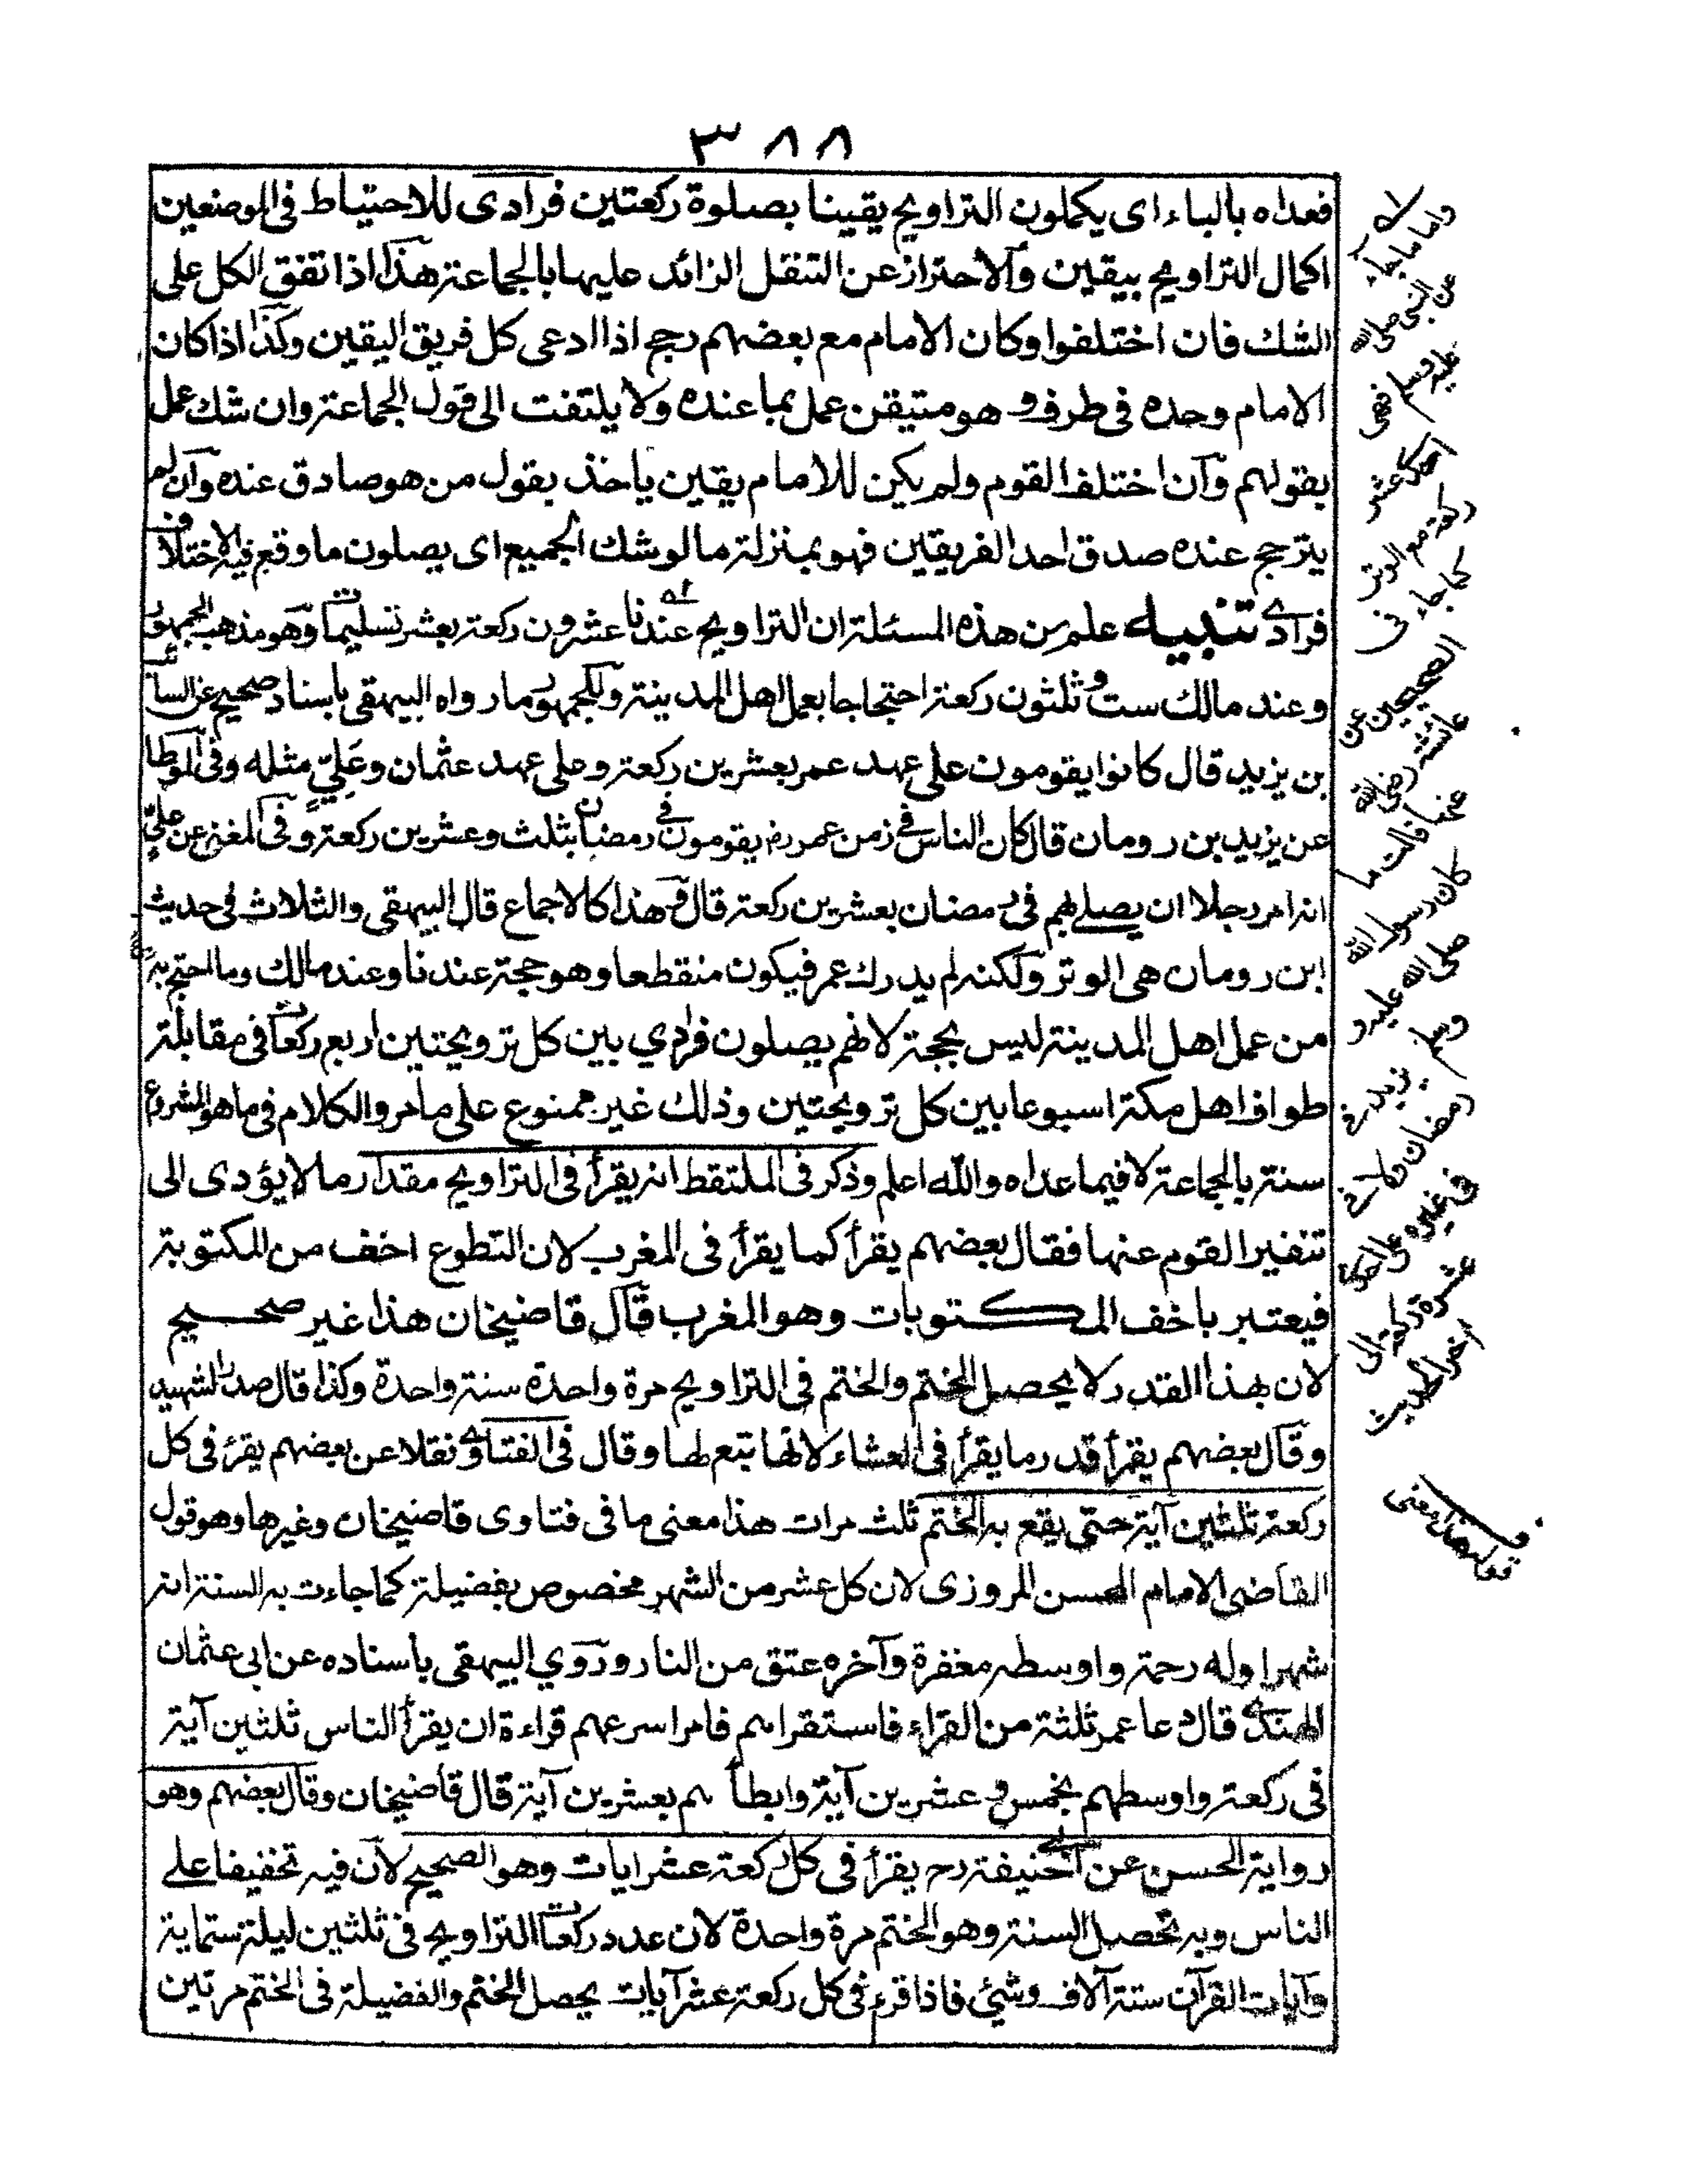 ٣٨٨
فعداه بالباء اى يكملون التراويح يقينا بصلوة ركعتين فرادى للاحتياط فى الموضعين
اكمال التراويح بيقين والاحتراز عن التنفل الزائد عليها بالجماعة هذا اذا تفق الكل على
الشك فان اختلفوا وكان الامام مع بعضهم رجح اذا ادعى كل فريق اليقين وكذا اذا كان
الامام وحده فى طرف و هو متيقن عمل بما عنده ولا يلتفت الى قول الجماعة وان شك عمل
بقولهم وان اختلف القوم ولم يكن للامام يقين ياخذ بقول من هو صادق عنده وان لم
يترجح عنده صدق احد الفريقين فهو بمنزلة ما لو شك الجميع اى يصلون ما وقع فيه الاختلاف
فرادے تنبيه علم من هذه المسئلة ان التراويح عندنا عشرون ركعة بعشر تسليمات وهو مذهب الجمهور
وعند مالك ست وثلثون ركعة احتجاجا بعمل اهل المدينة وللجمهور ما رواه البيهقى باسناد صحيح عن السائب
بن يزيد قال كانوا يقومون على عهد عمر بعشرين ركعة وعلى عهد عثمان وعَلِيٍّ مثله وفى الموطا
عن يزيد بن رومان قال كان الناس فے زمن عمر رض يقومون فے رمضان بثلث وعشرين ركعة وفى المغنى عن علىٍّ
انه امر رجلا ان يصلے بهم فى رمضان بعشرين ركعة قال وهذا كالاجماع قال البيهقى والثلاث فى حديث
ابن رومان هى الوتر ولكنه لم يدرك عمر فيكون منقطعا وهو حجة عندنا وعند مالك وما احتج به
من عمل اهل المدينة ليس بحجة لانهم يصلون فرادي بين كل ترويحتين اربع ركعات فى مقابلة
طواف اهل مكة اسبوعا بين كل ترويحتين وذلك غير ممنوع على ما مر والكلام فى ما هو المشروع
سنة بالجماعة لا فيما عداه والله اعلم وذكر فى الملتقط انه يقرأ فى التراويح مقدار ما لا يؤدى الى
تنفير القوم عنها فقال بعضهم يقرأ كما يقرأ فى المغرب لان التطوع اخف من المكتوبة
فيعتبر باخف المكتوبات وهو المغرب قال قاضيخان هذا غير صحيح
لان بهذا القدر لا يحصل الختم والختم فى التراويح مرة واحدة سنة واحدة وكذا قال صدر الشهيد
وقال بعضهم يقرأ قدر ما يقرأ فى العشاء لانها تبع لها وقال فى الفتاوے نقلا عن بعضهم يقرئ فى كل
ركعة ثلثين آية حتى يقع به الختم ثلث مرات هذا معنى ما فى فتاوى قاضيخان وغيرها وهو قول
القاضى الامام المحسن المروزى لان كل عشر من الشهر مخصوص بفضيلة كما جاءت به السنة انه
شهر اوله رحمة واوسطه مغفرة وآخره عتق من النار وروي البيهقى باسناده عن ابى عثمان
الهندے قال دعا عمر ثلثة من القراء فاستقراهم فامر اسرعهم قراءة ان يقرأ الناس ثلثين آية
فى ركعة واوسطهم بخمس و عشرين آية وابطأ هم بعشرين آية قال قاضيخان وقال بعضهم وهو
رواية الحسن عن ابى حنيفة رح يقرأ فى كل ركعة عشر ايات وهو الصحيح لان فيه تخفيفا علے
الناس وبه تحصل السنة وهو الختم مرة واحدة لان عدد ركعات التراويح فى ثلثين ليلة ستماية
وآيات القرآن ستة آلاف وشئ فاذا قرء فى كل ركعة عشر آيات يحصل الختم والفضيلة فى الختم مرتين
واما ما جاء
عن النبى صلى الله
عليه وسلم فهى
احدى عشر
ركعة مع الوتر
كما جاء فى
الصحيحين عن
عائشة رضى الله
عنها قالت ما
كان رسول الله
صلى الله عليه و
وسلم يزيد فى
رمضان ولا فى
فى غيره على احدى
عشرة ركعة الى
آخر الحديث